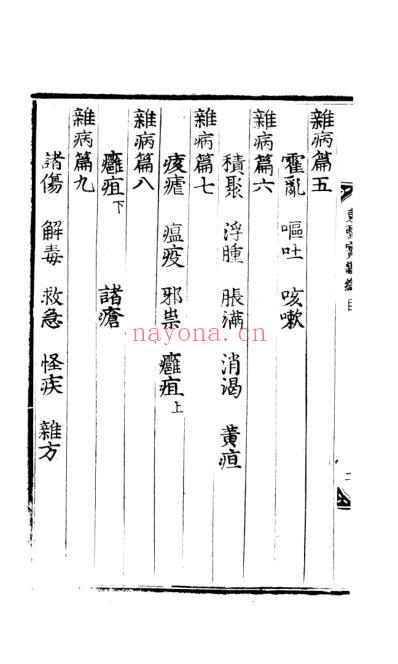 雜病篇五
霍亂 嘔吐 咳嗽
雜病篇六
積聚 浮腫 脹滿 消渴 黃疸
雜病篇七
痎瘧 瘟疫 邪祟 癰疽上
雜病篇八
癰疽下 諸瘡
雜病篇九
諸傷 解毒 救急 怪疾 雜方
nayona.cn